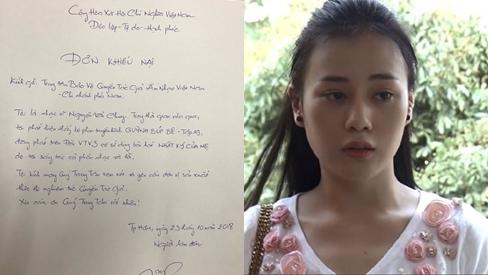 Cộng Hòa Xã Hội Chủ Nghĩa Việt Nam
Độc lập - Tự do - Hạnh phúc
ĐƠN KHIẾU NẠI
Kính gửi: Trung tâm Bảo Vệ Quyền Tác Giả Âm Nhạc Việt Nam
- Chi nhánh phía Nam.
Tôi là nhạc sĩ Nguyễn Văn Chung. Trong thời gian vừa qua,
tôi phát hiện thấy bộ phim truyền hình QUỲNH BÚP BÊ - Tập 19,
đang phát trên Đài VTV3 có sử dụng bài hát NHẬT KÝ CỦA MẸ
do tôi sáng tác và
Tôi kính mong Quý Trung Tâm xem xét và yêu cầu đơn vị sản xuất
thực thi nghiêm túc Quyền Tác Giả.
Xin cảm ơn Quý Trung Tâm rất nhiều!
Tp HCM, ngày 23 tháng 10 năm 2018
Người làm đơn